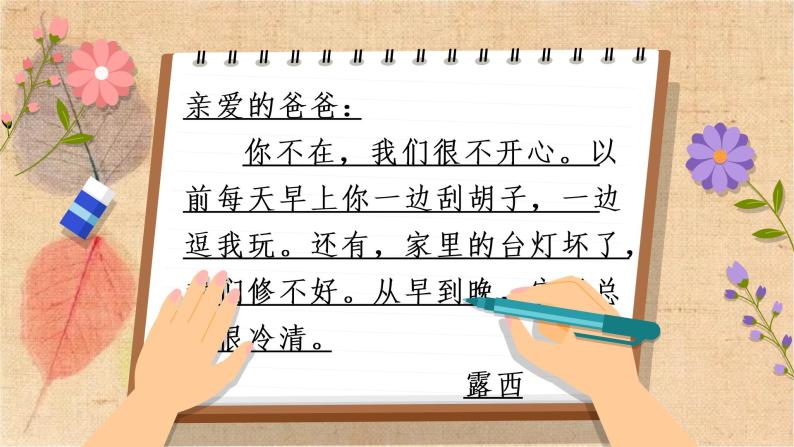 亲爱的爸爸：
你不在，我们很不开心。以
前每天早上你一边刮胡子，一边
逗我玩。还有，家里的台灯坏了，
们修不好。从早到晚，总
很冷清。
露西